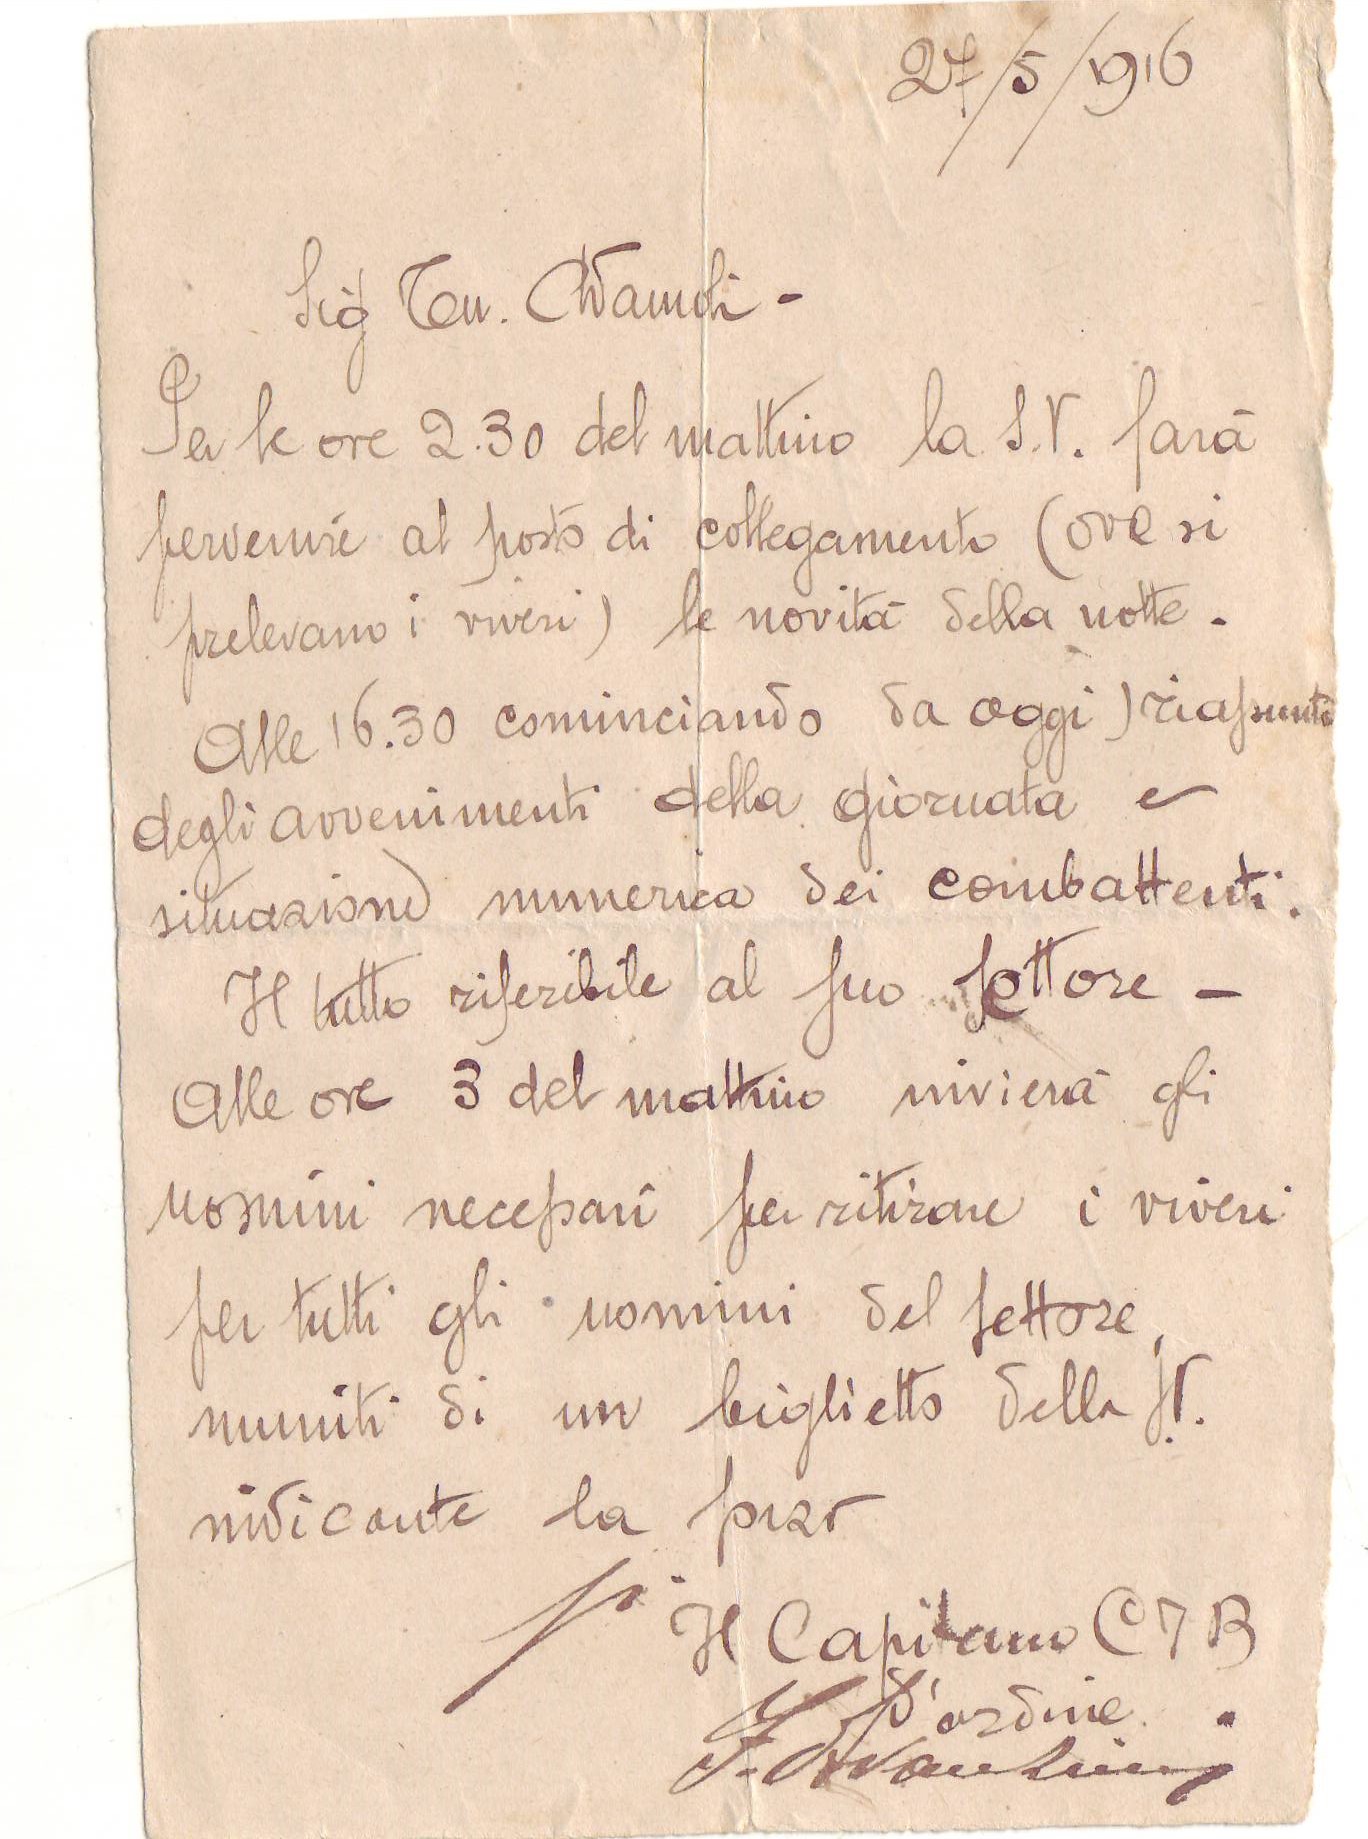 27/5/1916
Sig Ten.
Per le ore 2.30 del mattino la S.V. farà
pervenire al posto di collegamento (ove si
prelevano i viveri) le novità della notte.
Alle 16.30 cominciando da oggi) riassunto
degli avvenimenti della giornata e
situazione numerica dei combattenti.
Il tutto riferibile al suo settore -
Alle ore 3 del mattino invierà gli
uomini necessari per ritirare i viveri
per tutti gli uomini del settore,
muniti di un biglietto della S.V.
indicante la forza
p. Il Capitano C 7 B
d'ordine